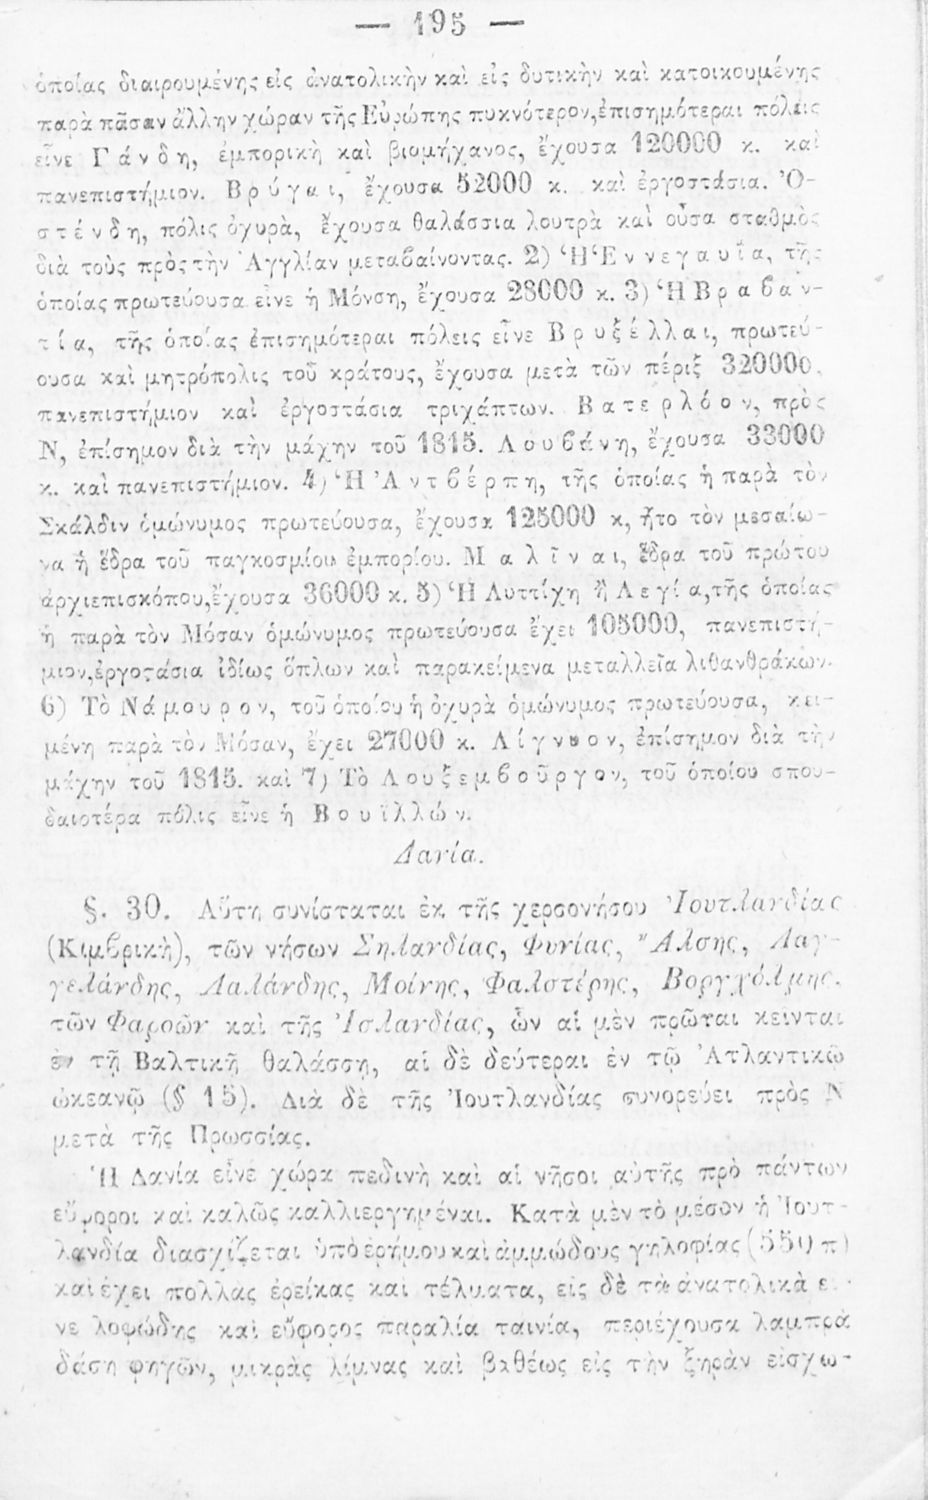 — 195 —
ὁποίας διαιρουμένης εἰς ἀνατολικὴν καὶ εἰς δυτικὴν καὶ κατοικουμένης
παρὰ πᾶσαν ἄλλην χώραν τῆς Εὐρώπης πυκνότερον, ἐπισημότεραι πόλεις
εἶνε Γάνδη, ἐμπορικὴ καὶ βιομήχανος, ἔχουσα 120000 κ. καὶ
πανεπιστήμιον. Βρύγαι, ἔχουσα 52000 κ. καὶ ἐργοστάσια. Ὀ-
στένδη, πόλις ὀχυρὰ, ἔχουσα θαλάσσια λουτρὰ καὶ οὖσα σταθμὸς
διὰ τοὺς πρὸς τὴν Ἀγγλίαν μεταβαίνοντας. 2) Ἡ Ἑννεγαυΐα, τῆς
ὁποίας πρωτεύουσα εἶνε ἡ Μόνση, ἔχουσα 28000 κ. 3) Ἡ Βραβαν-
τία, τῆς ὁποίας ἐπισημότεραι πόλεις εἶνε Βρυξέλλαι, πρωτεύ-
ουσα καὶ μητρόπολις τοῦ κράτους, ἔχουσα μετὰ τῶν πέριξ 320000,
πανεπιστήμιον καὶ ἐργοστάσια τριχάπτων. Βατερλόον, πρὸς
Ν, ἐπίσημον διὰ τὴν μάχην τοῦ 1815. Λουβάνη, ἔχουσα 33000
κ. καὶ πανεπιστήμιον. 4) Ἡ Ἀντβέρπη, τῆς ὁποίας ἡ παρὰ τὸν
Σκάλδιν ὁμώνυμος πρωτεύουσα, ἔχουσα 125000 κ, ἦτο τὸν μεσαίω-
να ἡ ἕδρα τοῦ παγκοσμίου ἐμπορίου. Μαλῖναι, ἕδρα τοῦ πρώτου
ἀρχιεπισκόπου, ἔχουσα 36000 κ. 5) Ἡ Λυττίχη ἢ Λεγία, τῆς ὁποίας
ἡ παρὰ τὸν Μόσαν ὁμώνυμος πρωτεύουσα ἔχει 105000, πανεπιστή-
μιον, ἐργοστάσια ἰδίως ὅπλων καὶ παρακείμενα μεταλλεῖα λιθανθράκων.
6) Τὸ Νάμουρον, τοῦ ὁποίου ἡ ὀχυρὰ ὁμώνυμος πρωτεύουσα, κει-
μένη παρὰ τὸν Μόσαν, ἔχει 27000 κ. Λίγνυον, ἐπίσημον διὰ τὴν
μάχην τοῦ 1815. καὶ 7) Τὸ Λουξεμβοῦργον, τοῦ ὁποίου σπου-
δαιοτέρα πόλις εἶνε ἡ Βουϊλλών.
Δανία.
§. 30. Αὕτη συνίσταται ἐκ τῆς χερσονήσου Ἰουτλανδίας
(Κιμβρικὴ), τῶν νήσων Σηλανδίας, Φυνίας, Ἄλσης, Λαγ-
γελάνδης, Λαλάνδης, Μοίνης, Φαλστέρης, Βοργχόλμης,
τῶν Φαροῶν καὶ τῆς Ἰσλανδίας, ὧν αἱ μὲν πρῶται κεῖνται
ἐν τῇ Βαλτικῇ θαλάσσῃ, αἱ δὲ δεύτεραι ἐν τῷ Ἀτλαντικῷ
ὠκεανῷ (§ 15). Διὰ δὲ τῆς Ἰουτλανδίας συνορεύει πρὸς Ν
μετὰ τῆς Πρωσσίας.
Ἡ Δανία εἶνε χώρα πεδινὴ καὶ αἱ νῆσοι αὐτῆς πρὸ πάντων
εὔφοροι καὶ καλῶς καλλιεργημέναι. Κατὰ μὲν τὸ μέσον ἡ Ἰουτ-
λανδία διασχίζεται ὑπὸ ἐρήμου καὶ ἀμμώδους γηλοφίας (550 π)
καὶ ἔχει πολλὰς ἐρείκας καὶ τέλματα, εἰς δὲ τὰ ἀνατολικὰ εἶ-
νε λοφώδης καὶ εὔφορος παραλία ταινία, περιέχουσα λαμπρὰ
δάση φηγῶν, μικρὰς λίμνας καὶ βαθέως εἰς τὴν ξηρὰν εἰσχω-